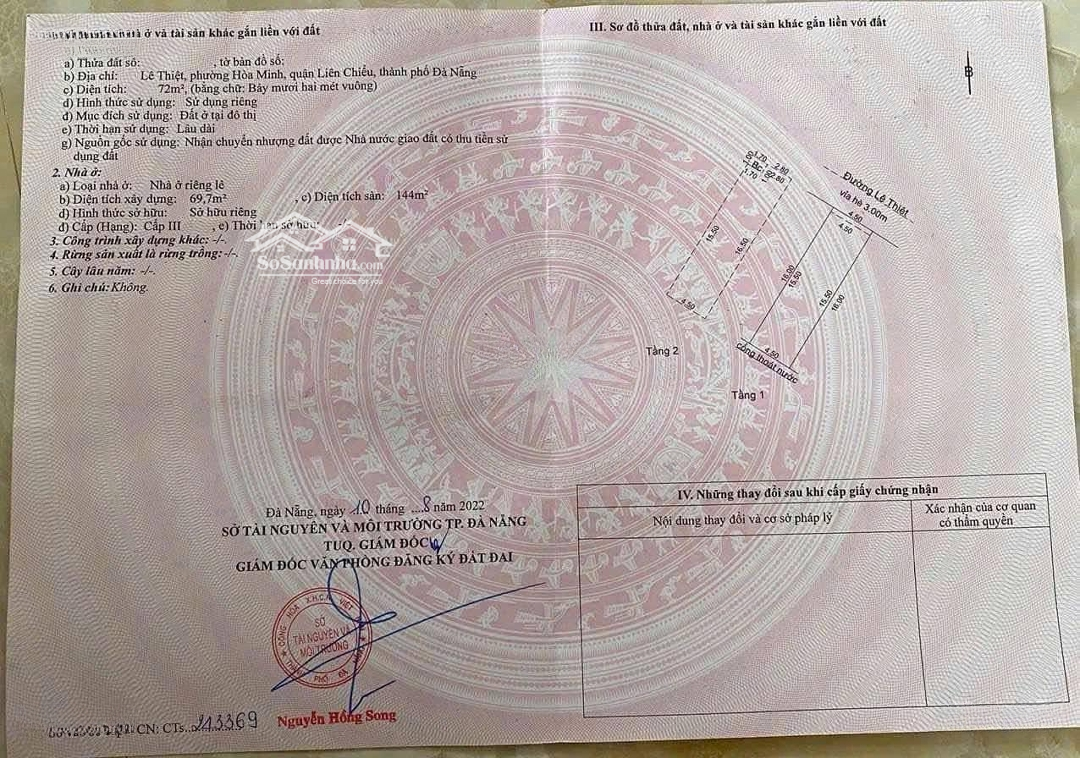 ở và tài sản khác gắn liền với đất
a) Thửa đất số: , tờ bản đồ số:
b) Địa chỉ: Lê Thiệt, phường Hòa Minh, quận Liên Chiểu, thành phố Đà Nẵng
c) Diện tích: 72m², (bằng chữ: Bảy mươi hai mét vuông)
d) Hình thức sử dụng: Sử dụng riêng
đ) Mục đích sử dụng: Đất ở tại đô thị
e) Thời hạn sử dụng: Lâu dài
g) Nguồn gốc sử dụng: Nhận chuyển nhượng đất được Nhà nước giao đất có thu tiền sử
dụng đất
2. Nhà ở:
a) Loại nhà ở: Nhà ở riêng lẻ
b) Diện tích xây dựng: 69,7m² , c) Diện tích sàn: 144m²
d) Hình thức sở hữu: Sở hữu riêng
đ) Cấp (Hạng): Cấp III , e) Thời hạn sở hữu: -/-
3. Công trình xây dựng khác: -/-.
4. Rừng sản xuất là rừng trồng: -/-.
5. Cây lâu năm: -/-.
6. Ghi chú: Không.
SoSanhnha.com
Great choice for you
Đà Nẵng, ngày 10 tháng ...8 năm 2022
SỞ TÀI NGUYÊN VÀ MÔI TRƯỜNG TP. ĐÀ NẴNG
TUQ. GIÁM ĐỐC
GIÁM ĐỐC VĂN PHÒNG ĐĂNG KÝ ĐẤT ĐAI
CỘNG HÒA X.H.C.N VIỆT
SỞ
TÀI NGUYÊN VÀ
MÔI TRƯỜNG
THÀNH PHỐ ĐÀ
Nguyễn Hồng Song
CN: CTs..213369
III. Sơ đồ thửa đất, nhà ở và tài sản khác gắn liền với đất
B
1.70 2.80
2.80
1.70
15.50
16.50
4.50
Tầng 2
Đường Lê Thiệt
vỉa hè 3.00m
4.50
4.50
16.00
15.50
15.50
16.00
4.50
cống thoát nước
Tầng 1
IV. Những thay đổi sau khi cấp giấy chứng nhận
Nội dung thay đổi và cơ sở pháp lý
Xác nhận của cơ quan
có thẩm quyền